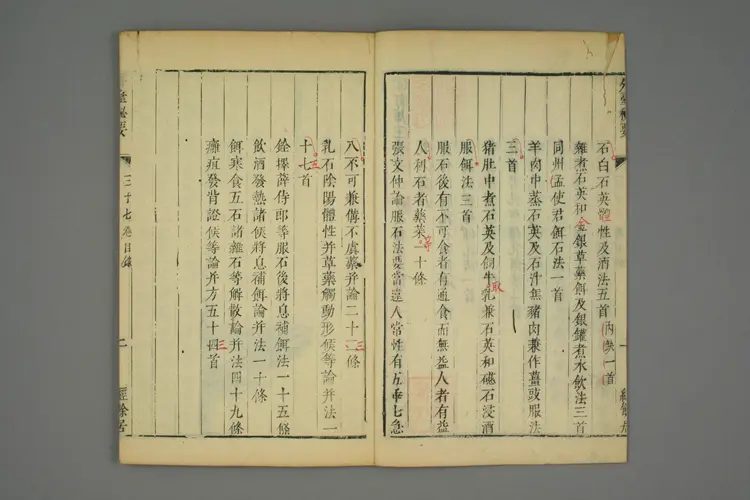 石白石英體性及酒法五首 內缺一首
雜煮石英和金銀草藥餌及銀鑵煮水飲法三首
同州孟使君餌石法一首
羊肉中蒸石英及石汁無豬肉兼作薑豉服法
三首
豬肚中煮石英及飼牛乳兼石英和磁石浸酒
取
服餌法三首
服石後有不可食者有通食而無益人者有益
人利石者藥菜二十條
等
張文仲論服石法要當違人常性有五乖七急
八不可兼備不虞藥并論二十二條
三
乳石陰陽體性并草藥觸動形候等論并法一
十七首
五
銓擇薛侍郎等服石後將息補餌法一十五條
飲酒發熱諸候將息補餌論并法一十條
餌寒食五石諸雜石等解散論并法四十九條
癰疽發背證候等論并方五十四首
三
三十七卷目錄
二
經餘居